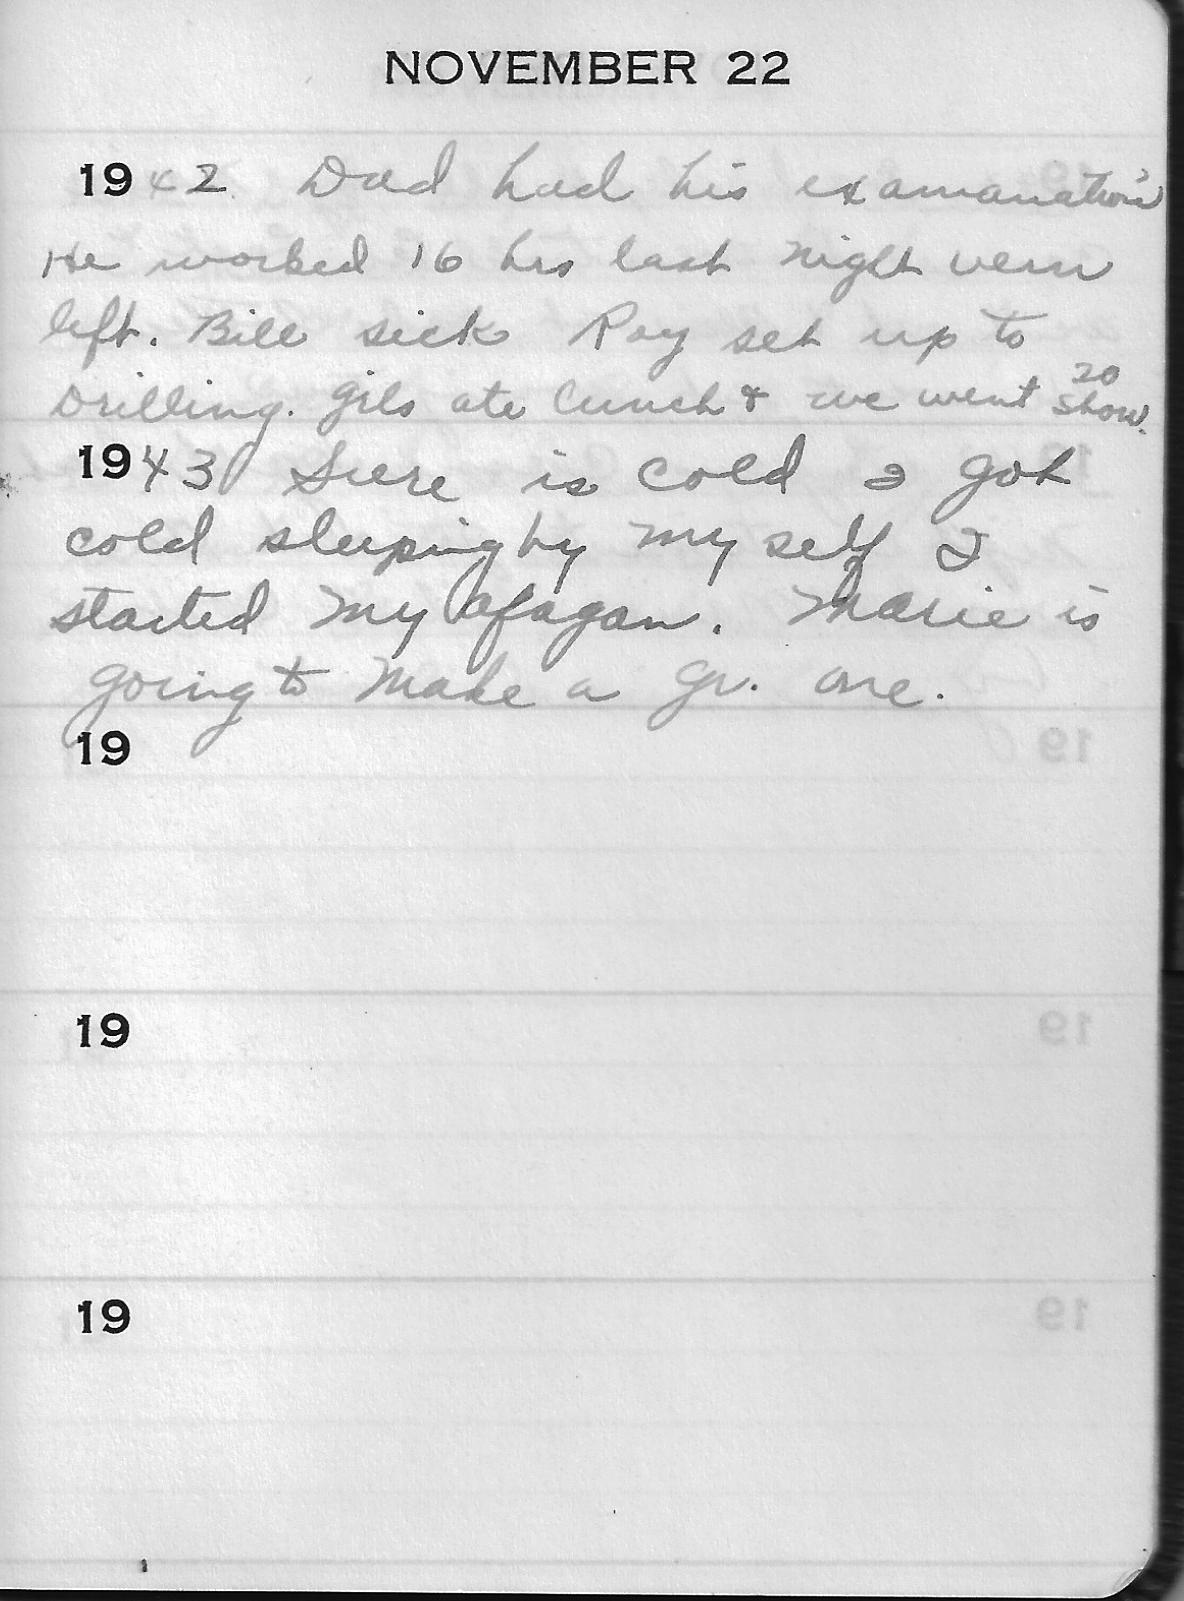 NOVEMBER 22
1942 Dad had his examanation's
He worked 16 hrs last night Vern
left. Bill sick Roy set up to
Drilling. Girls ate lunch & we went to
show.
1943 Sure is cold I got
cold sleeping by my self I
started my afagan. Marie is
going to make a gr. one.
19
19
19